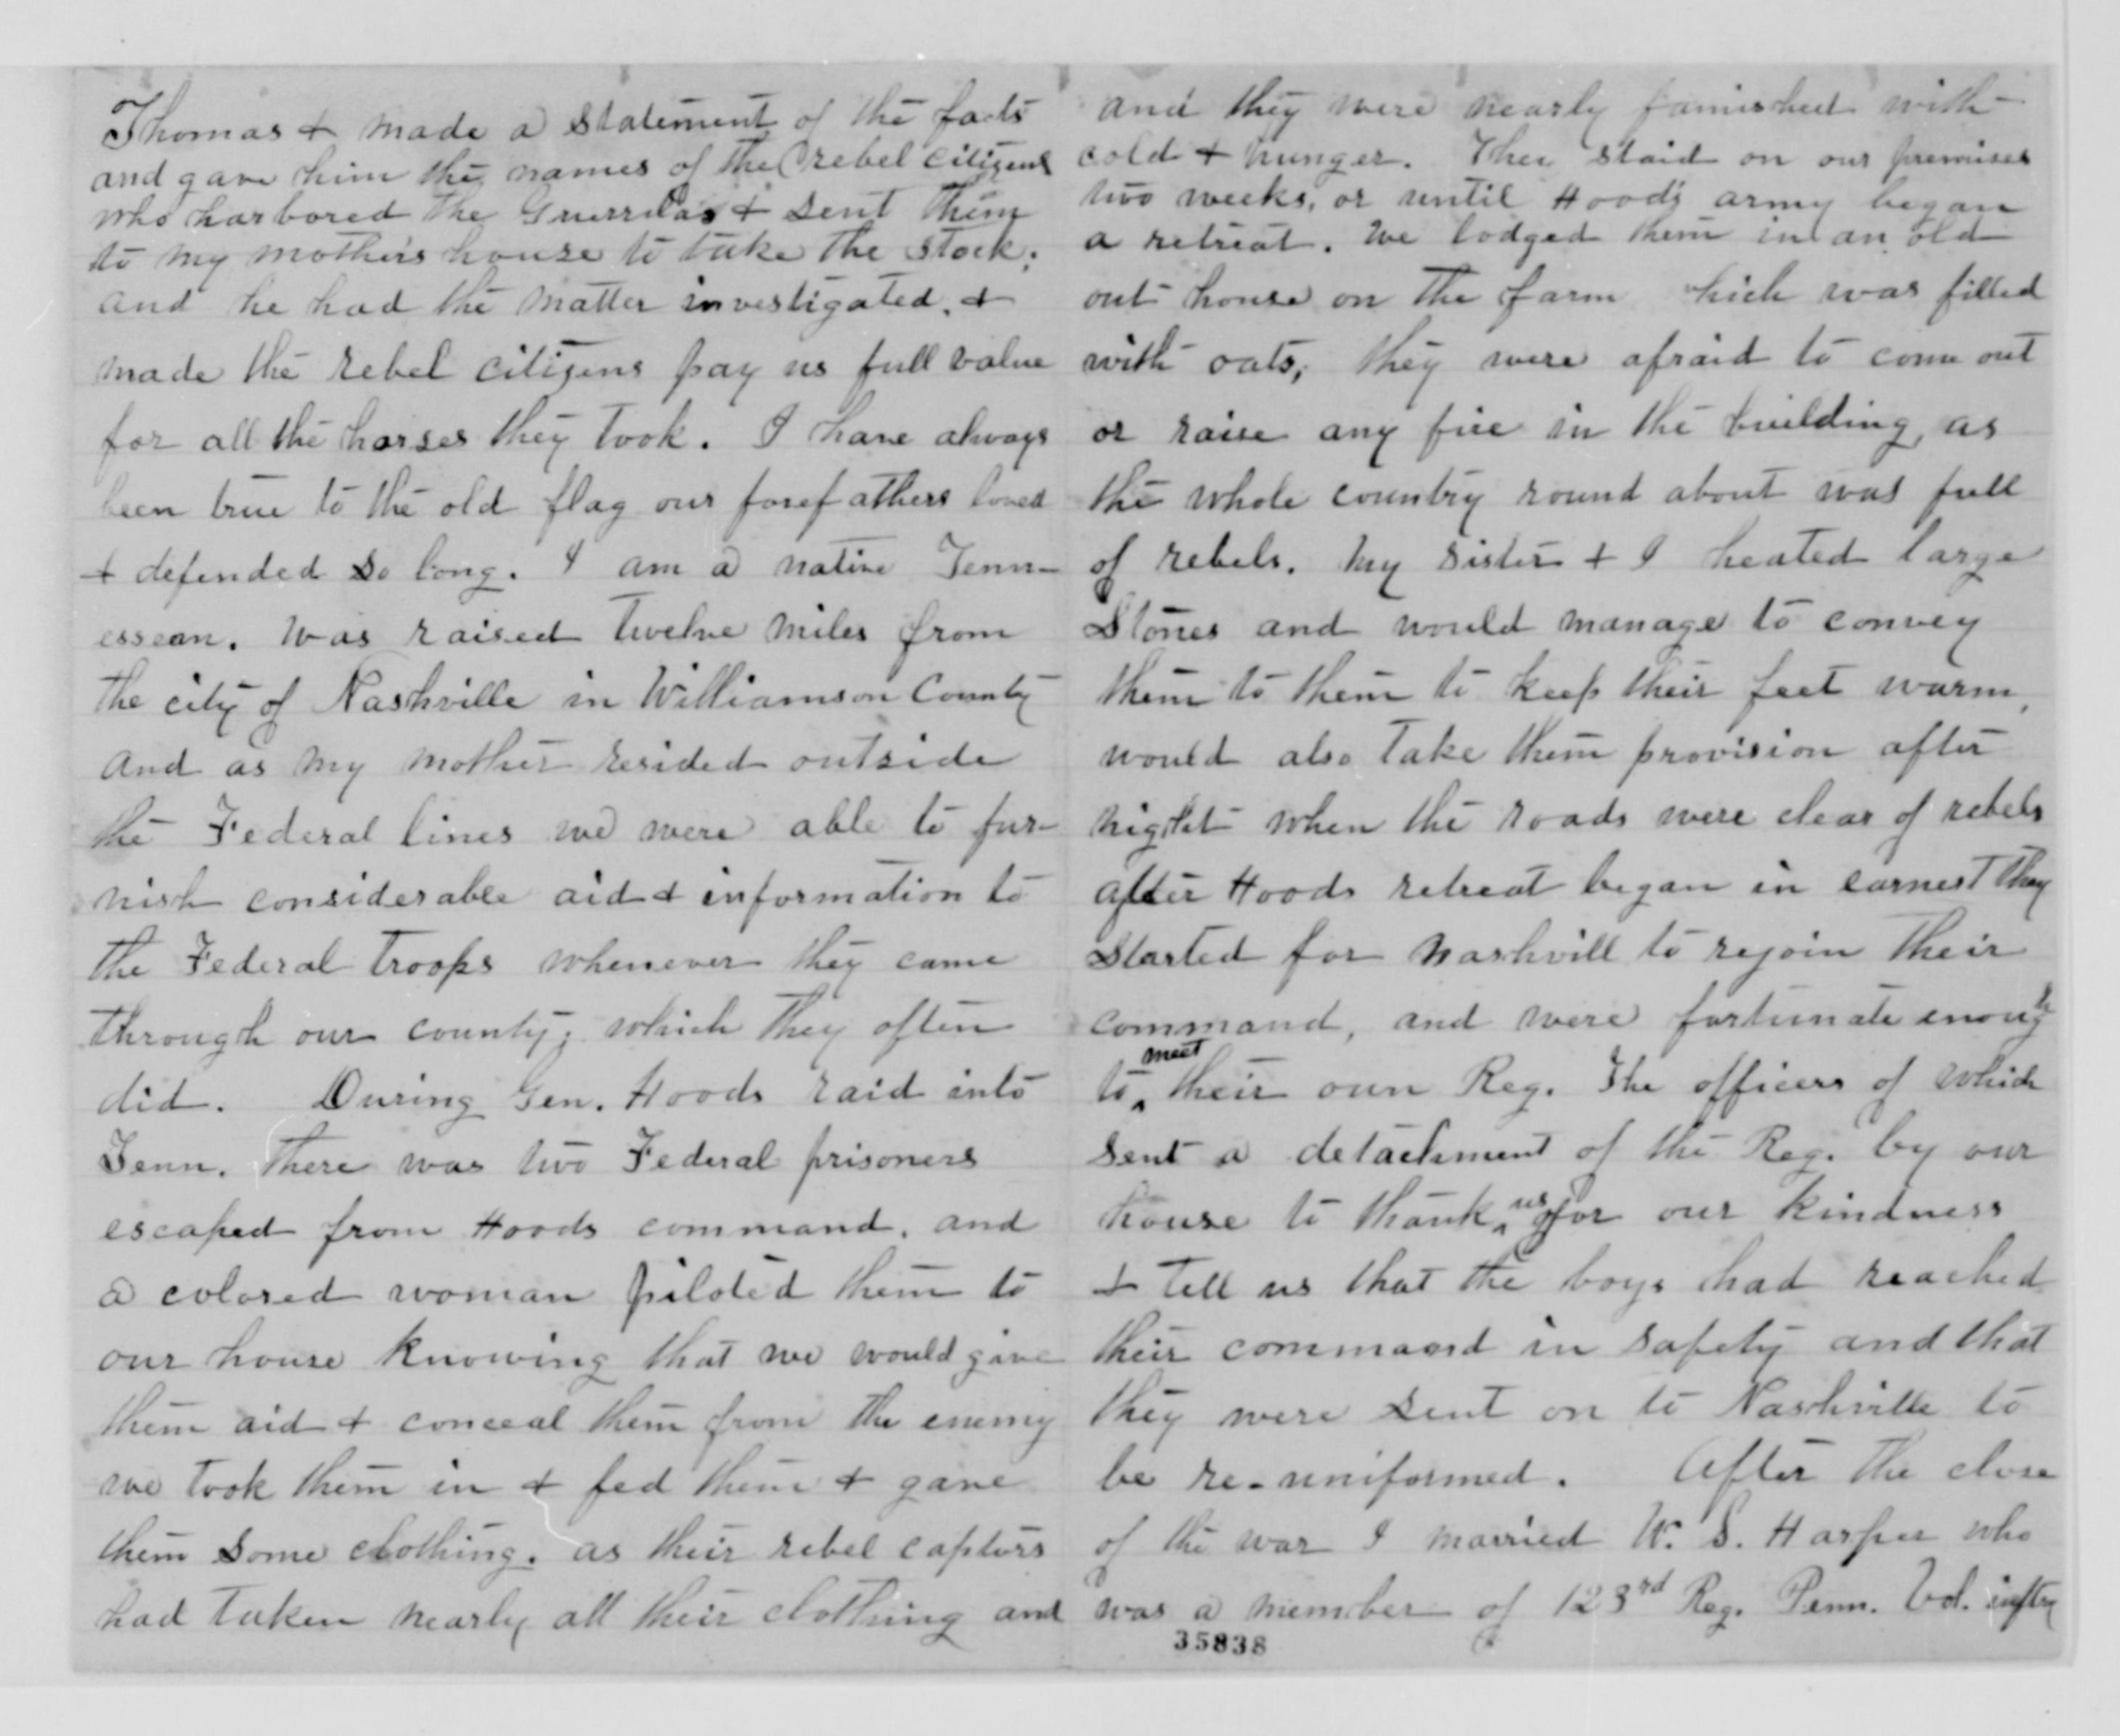 Thomas + made a statement of the facts
and gave him the names of the rebel citizens
who harbored the Guerrilas + sent them
to my mother's house to take the stock;
and he had the matter investigated, +
made the rebel citizens pay us full value
for all the horses they took. I have always
been true to the old flag our forefathers loved
+ defended so long. I am a native Tenn-
essean. Was raised twelve miles from
the city of Nashville in Williamson County
and as my mother resided outside
the Federal lines we were able to fur-
nish considerable aid + information to
the Federal troops whenever they came
through our county; which they often
did. During Gen. Hoods raid into
Tenn. there was two Federal prisoners
escaped from Hoods command, and
a colored woman piloted them to
our house knowing that we would give
them aid + conceal them from the enemy
we took them in + fed them + gave
them some clothing. as their rebel capturs
had taken nearly all their clothing and
and they were nearly famished with
cold + hunger. They staid on our premises
two weeks, or until Hood's army began
a retreat. We lodged them in an old
out house on the farm hich was filled
with oats, they were afraid to come out
or raise any fire in the building, as
the whole country round about was full
of rebels. My sister + I heated large
stones and would manage to convey
them to them to keep their feet warm,
would also take them provision after
night when the roads were clear of rebels
after Hoods retreat began in earnest they
started for Nashvill to rejoin their
command, and were fortunate enough
to meet their own Reg. The officers of which
sent a detachment of the Reg. by our
house to thank us for our kindness
+ tell us that the boys had reached
their command in safety and that
they were sent on to Nashville to
be re-uniformed. After the close
of the war I married W. S. Harper who
was a member of 123rd Reg. Penn. Vol. inftry
35838